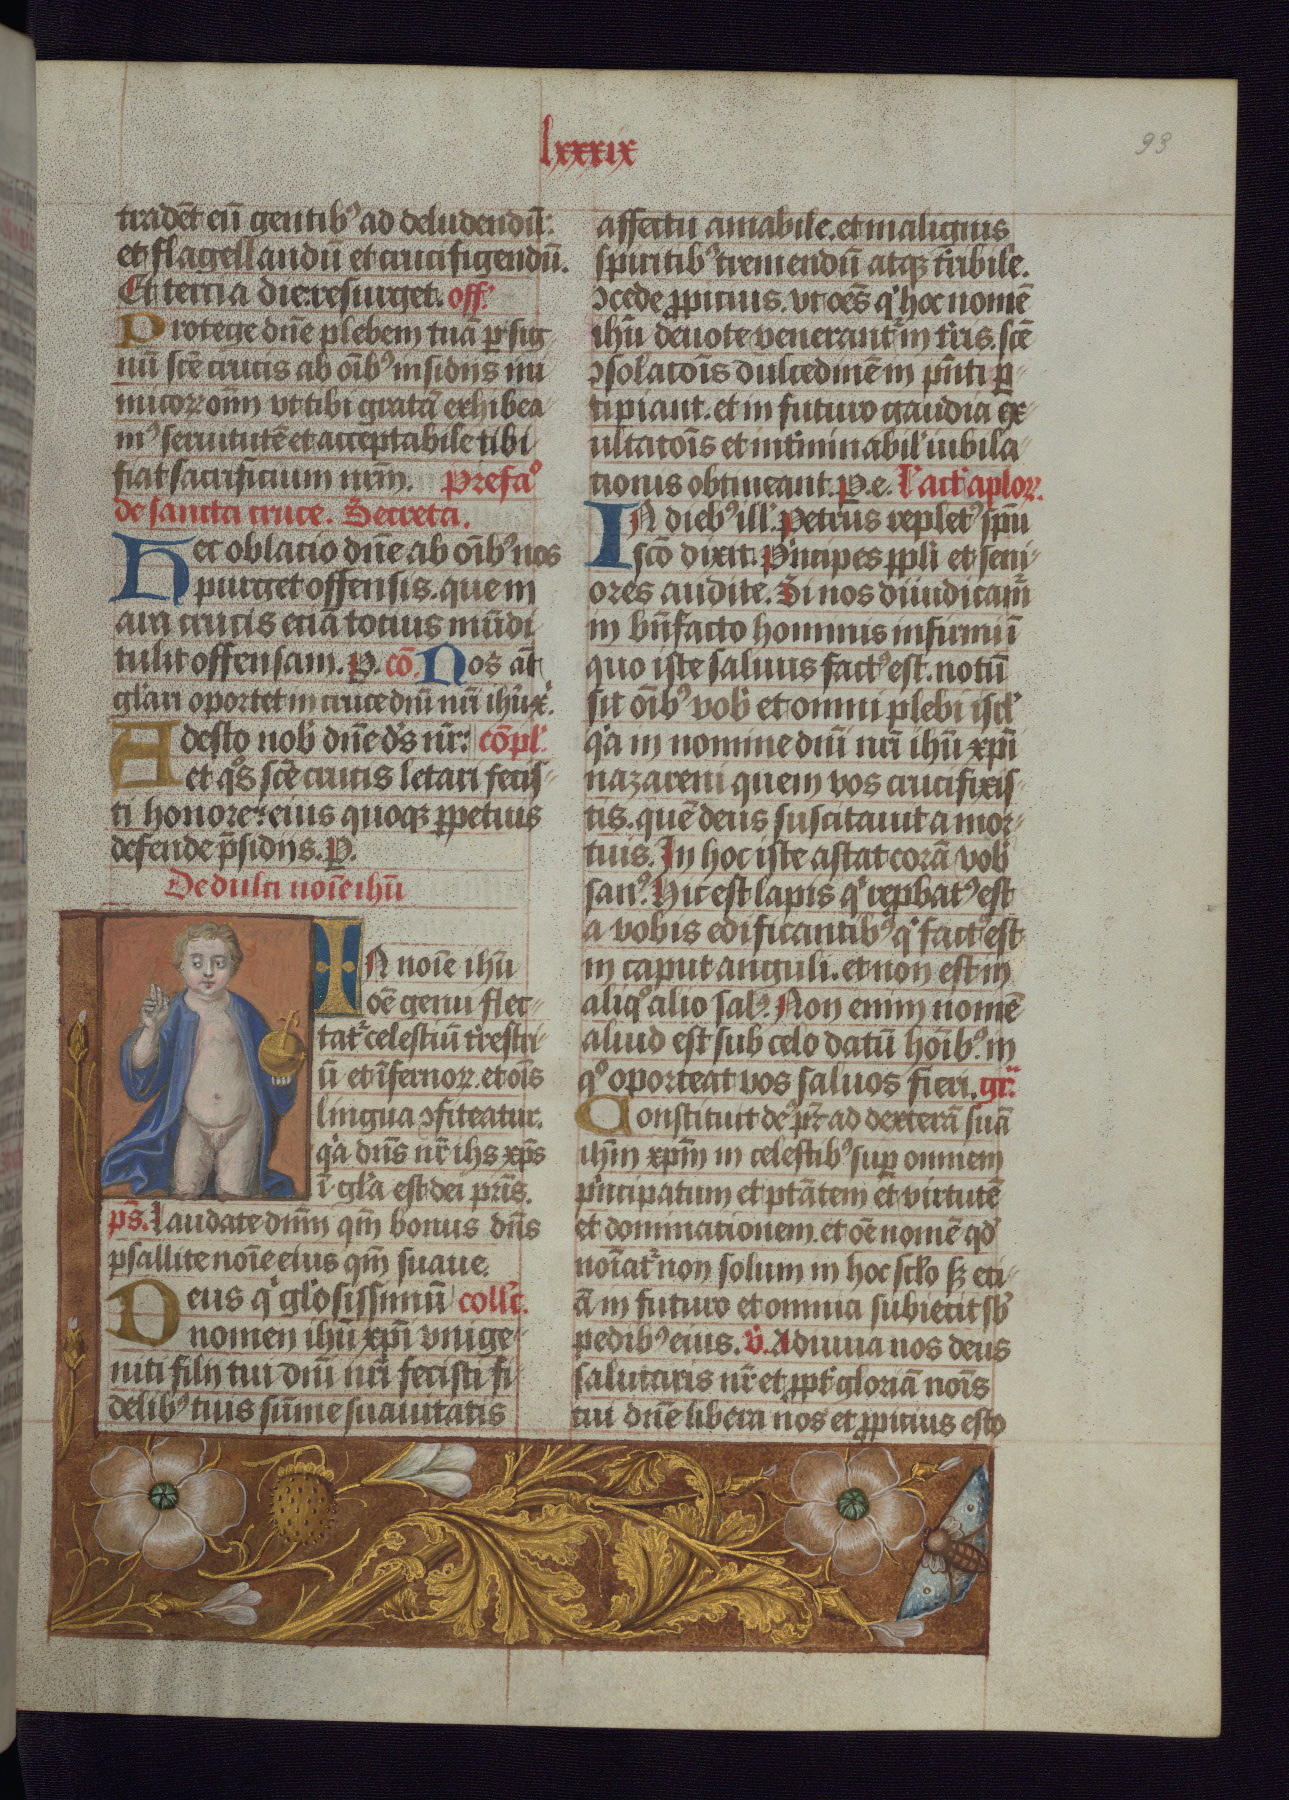 lxxxix
93
tradēt eū gentibꝰ ad deludendū:
et flagellandū et crucifigendū.
Et tercia die resurget. off.
Protege dn̄e plebem tuā ꝑ sig
nū sc̄e crucis ab oībꝰ insidijs ini
micoꝝ om̄ vt tibi gratā exhibea
mꝰ seruitutē et acceptabile tibi
fiat sacrificium nrm̄. Prefaᵒ
de sancta cruce. Secreta.
Hec oblacio dn̄e ab oībꝰ nos
purget offensis. que in
ara crucis eciā totius mūdi
tulit offensam. P. cō. Nos āt
glari oportet in cruce dn̄i nr̄i ihū x.
Adesto nob dn̄e ds nr: cōpl.
et qs sc̄e crucis letari fecis
ti honore: eius quoqꝫ ꝑpetuis
defende p̄sidijs. P.
De dulci noīe ihū
In noīe ihū
oē genu flec
tatr celestiū trestri
ū et īfernoꝝ. et oīs
lingua ꝯfiteatur.
qa dn̄s nr̄ ihs xp̄s
ī gla est dei pr̄is.
ps. Laudate dn̄m qm̄ bonus dn̄s
psallite noīe eius qm̄ suaue.
Deus qͥ glosissimū collc̄.
nomen ihū xp̄i vnige
niti filij tui dn̄i nr̄i fecisti fi
delibꝰ tuis sūme suauitatis
affectu amabile. et malignis
spiritibꝰ tremendū atqꝫ tribile.
ꝯcede ꝓpitius. vt oēs qͥ hoc nomē
ihū deuote venerantr in tris. sc̄e
ꝯsolatōis dulcedinē in p̄nti ꝑ
cipiant. et in futuro gaudia ex
ultatōis et intminabil iubila
tionis obtineant. P. e. L'act' aploꝝ.
In diebꝰ ill. Petrus repletꝰ spū
sc̄o dixit. Principes ppli et seni
ores audite. Si nos diiudicamr
in bn̄facto hominis infirmi ī
quo iste saluus factꝰ est. notū
sit oībꝰ vob et omni plebi isrl
qa in nomine dn̄i nr̄i ihū xp̄i
nazareni quem vos crucifixis
tis. quē deus suscitauit a mor
tuis. In hoc iste astat corā vob
sanꝰ. Hic est lapis qͥ repbatꝰ est
a vobis edificantibꝰ qͥ factꝰ est
in caput anguli. et non est in
aliqᵒ alio salꝰ. Non enim nomē
aliud est sub celo datū hoībꝰ. in
qᵒ oporteat vos saluos fieri. gr.
Constituit de pr ad dexterā suā
ihm̄ xpm̄ in celestibꝰ suꝑ omnem
principatum et ptātem et virtutē
et dominationem. et oē nomē qd
noīatr non solum in hoc sclo sꝫ eti
ā in futuro et omnia subiecit sb
pedibꝰ eius. v. Adiuua nos deus
salutaris nr̄ et ꝓpt gloriā noīs
tui dn̄e libera nos et ꝓpitius esto